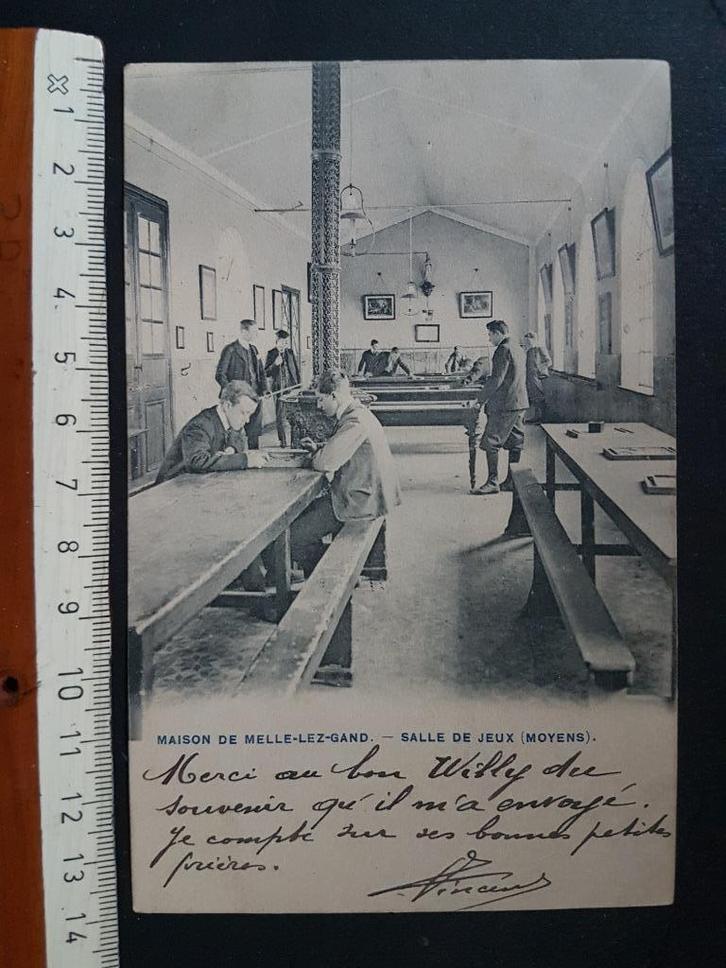 1
2
3
4
5
6
7
8
9
10
11
12
13
14
MAISON DE MELLE-LEZ-GAND. — SALLE DE JEUX (MOYENS).
Merci au bon Willy du
souvenir qu'il m'a envoyé.
Je compte sur ses bonnes petites
prières.
Vincent